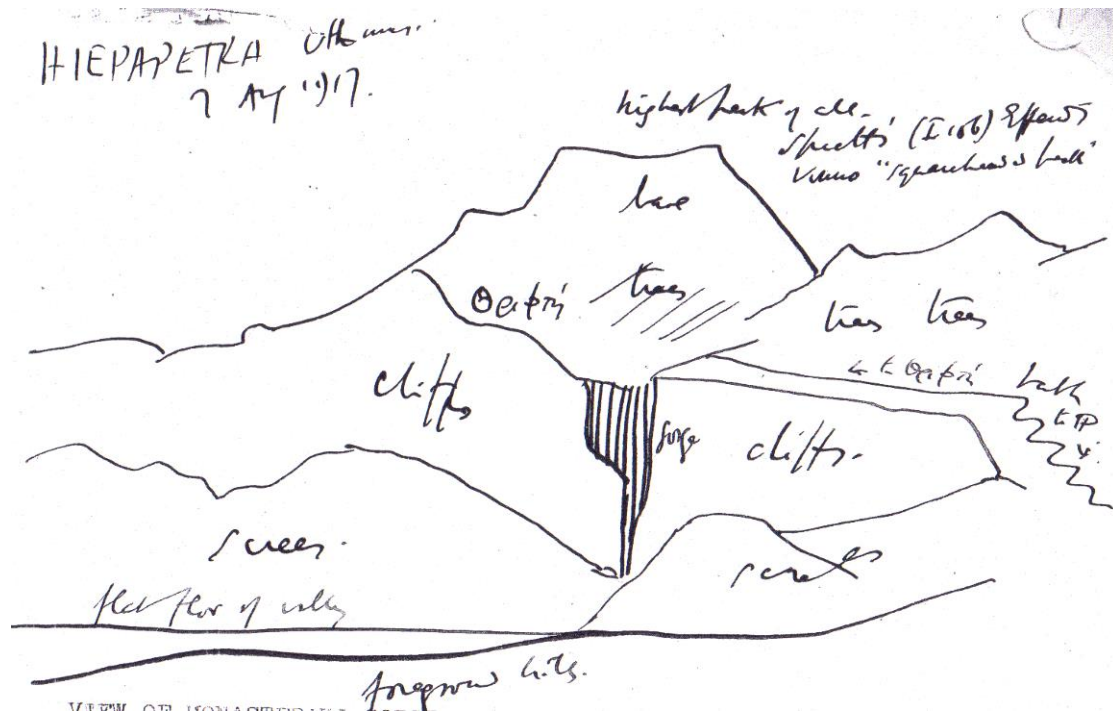 HIEPAPETKA
7 Aug 1917.
highest peak of all.
Spratt's (I 166) Effendi
Vouno "squareheaded peak"
bare
Θριφτή trees
trees trees
cliffs
← to Θριφτή path
to
gorge
cliffs.
screes.
screes
flat floor of valley
foreground hills.
VIEW OF MONASTERAKI